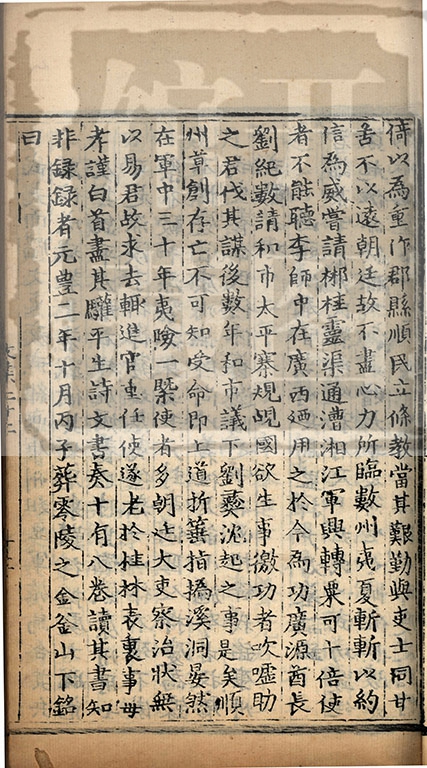 倚以為重作郡縣順民立條教當其艱勤與吏士同甘
苦不以遠朝廷故不盡心力所臨數州夷夏斬斬以約
信為威嘗請郴桂靈渠通漕湘江軍興轉粟可十倍使
者不能聽李師中在廣西廼用之於今為功廣源酋長
劉紀數請和市太平寨規覘國欲生事徼功者吹噓助
之君伐其謀後數年和市議下劉彝沈起之事是矣順
州草創存亡不可知受命即上道折箠指撝溪洞晏然
在軍中三十年夷嶮一槩使者多朝廷大吏察治狀無
以易君故求去輒進官重任使遂老於桂林表裏事母
孝謹白首盡其驩平生詩文書奏十有八卷讀其書知
非録録者元豊二年十月丙子葬零陵之金釜山下銘
曰